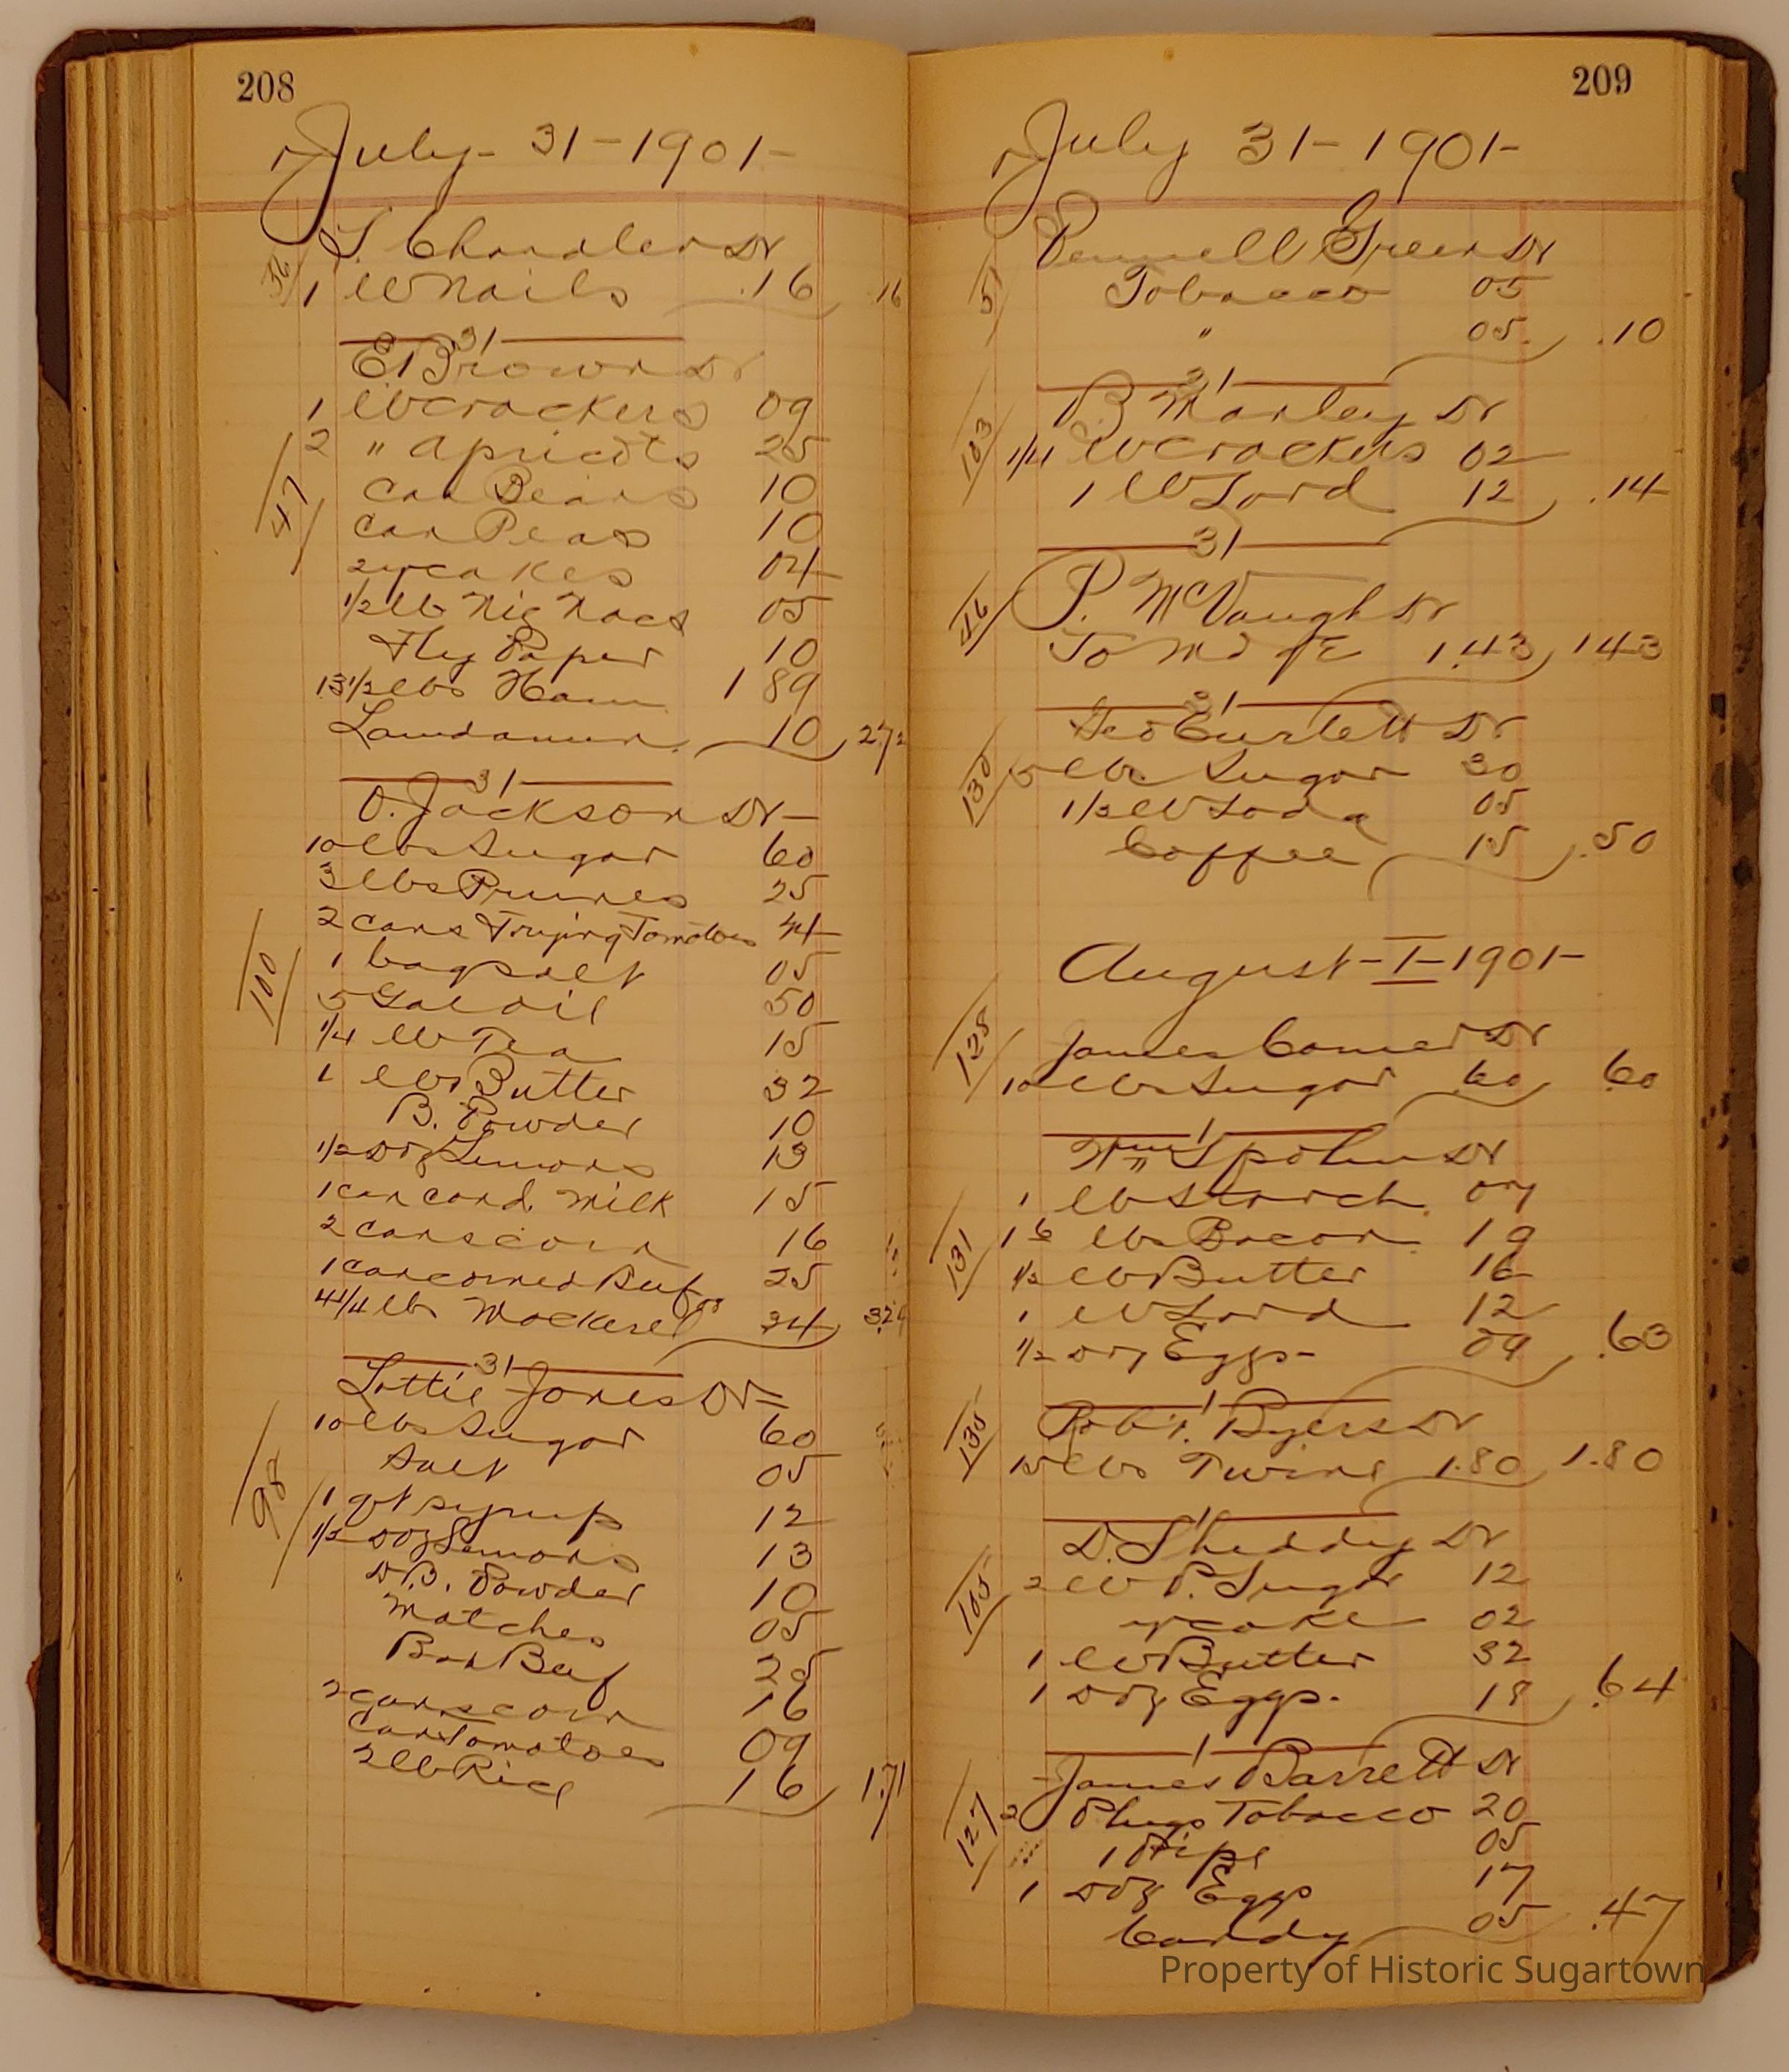 208
July - 31 - 1901 -
S. Chandler Dr
1 lb Nails .16 .16
31
E. Brown Dr
1 lb crackers 09
2 " Apricots 25
47
Can Beans 10
Can Peas 10
2 y cakes 04
1/2 lb Nic Nacs 05
Fly Paper 10
13 1/2 lbs Ham 1 89
Laudanum 10 2.72
31
O. Jackson Dr -
10 lbs Sugar 60
3 lbs Prunes 25
2 cans Tomatoes
100
1 bag salt 05
5 Gal oil 50
1/4 lb Tea 15
1 lb Butter 32
B. Powder 10
1/2 Doz Lemons 13
1 can cond. Milk 15
2 cans corn 16
1 can corned Beef 25
4 1/4 lb Mackerel 34
31
Lottie Jones Dr -
10 lbs Sugar 60
Salt 05
98
1 qt syrup 12
1/2 Doz Lemons 13
B. Powder 10
Matches 05
Beef 25
2 cans corn 16
Can Tomatoes 09
2 lb Rice 16 1.71
209
July 31 - 1901 -
Pennell Green Dr
51
Tobacco 05
" 05 .10
31
B. Manley Dr
103
1/4 lb crackers 02
1 lb Lard 12 .14
31
46
P. McVaugh Dr
To Md 1.43 1.43
31
Geo Curlett Dr
130
5 lbs Sugar 30
1/2 lb Soda 05
Coffee 15 .50
August - 1 - 1901 -
128
James Comer Dr
10 lbs Sugar 60 .60
1
Wm Spohn Dr
1 lb Starch 07
131
1 6 lbs Bacon 19
1/2 lb Butter 16
1 lb Lard 12
1/2 Doz Eggs - 09 .63
1
135
Robt. Byers Dr
15 lbs Twine 1.80 1.80
1
D. Sheddy Dr
105
2 lb P. Sugar 12
y cake 02
1 lb Butter 32
1 Doz Eggs. 18 .64
1
James Barrett Dr
127
2 Plugs Tobacco 20
1 Pipe 05
1 Doz Eggs 17
Candy 05 .47
Property of Historic Sugartown